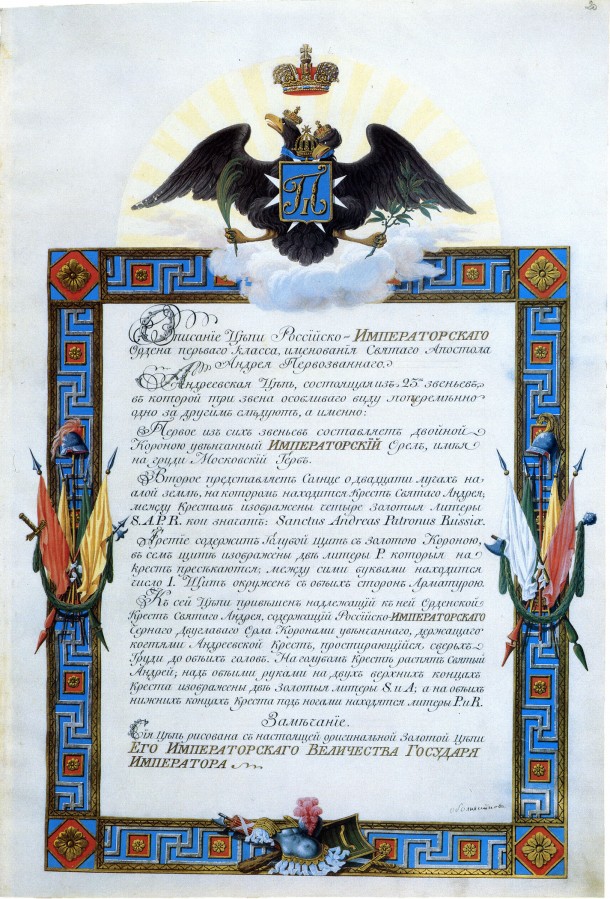 20
П I
Описаніе Цѣпи Россійско-ИМПЕРАТОРСКАГО
Ордена перьваго класса, именованія Святаго Апостола
Андрея Первозваннаго.
Андреевская Цѣпь, состоящая изъ 23хъ звеньевъ,
въ которой три звена особливаго виду поперемѣнно
одно за другимъ слѣдуютъ, а именно:
Первое изъ сихъ звеньевъ составляетъ двойной
Короною увѣнчанный ИМПЕРАТОРСКІЙ Орелъ, имѣя
на груди Московскій Гербъ.
Второе представляетъ Солнце о двадцати лучахъ на
алой землѣ, на которомъ находится Крестъ Святаго Андрея;
между Крестомъ изображены четыре Золотыя Литеры
S. A. P. R. кои значатъ: Sanctus Andreas Patronus Russiæ.
Третіе содержитъ Голубой Щитъ съ Золотою Короною,
въ семъ щитѣ изображены двѣ литеры Р. которыя на
крестъ пресѣкаются; между сими буквами находится
число 1. Щитъ окруженъ съ обѣихъ сторонъ Арматурою.
Къ сей Цѣпи привѣшенъ надлежащій къ ней Орденской
Крестъ Святаго Андрея, содержащій Россійско-ИМПЕРАТОРСКАГО
Чернаго Двуглаваго Орла Коронами увѣнчаннаго, держащаго
когтями Андреевской Крестъ, простирающійся сверьхъ
Груди до обѣихъ головъ. На голубомъ Крестѣ распятъ Святый
Андрей; надъ обѣими руками на двухъ верхнихъ концахъ
Креста изображены двѣ Золотыя литеры S. и A; а на обѣихъ
нижнихъ концахъ Креста подъ ногами находятся литеры P. и R.
Замѣчаніе.
Сія Цѣпь рисована съ настоящей оригинальной Золотой Цѣпи
ЕГО ИМПЕРАТОРСКАГО ВЕЛИЧЕСТВА ГОСУДАРЯ
ИМПЕРАТОРА